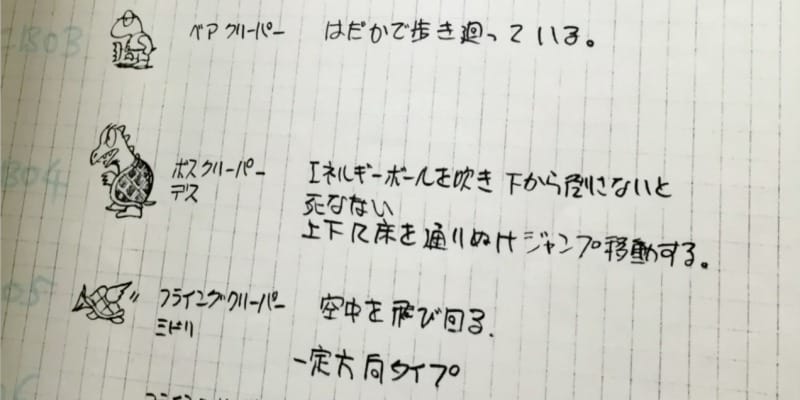 ベアクリーパー はだかで歩き廻っている。
ボスクリーパー エネルギーボールを吹き 下から倒さないと
デス 死なない
上下に床を通りぬけジャンプ移動する。
フライングクリーパー 空中を飛び回る.
ミドリ
一定方向タイプ